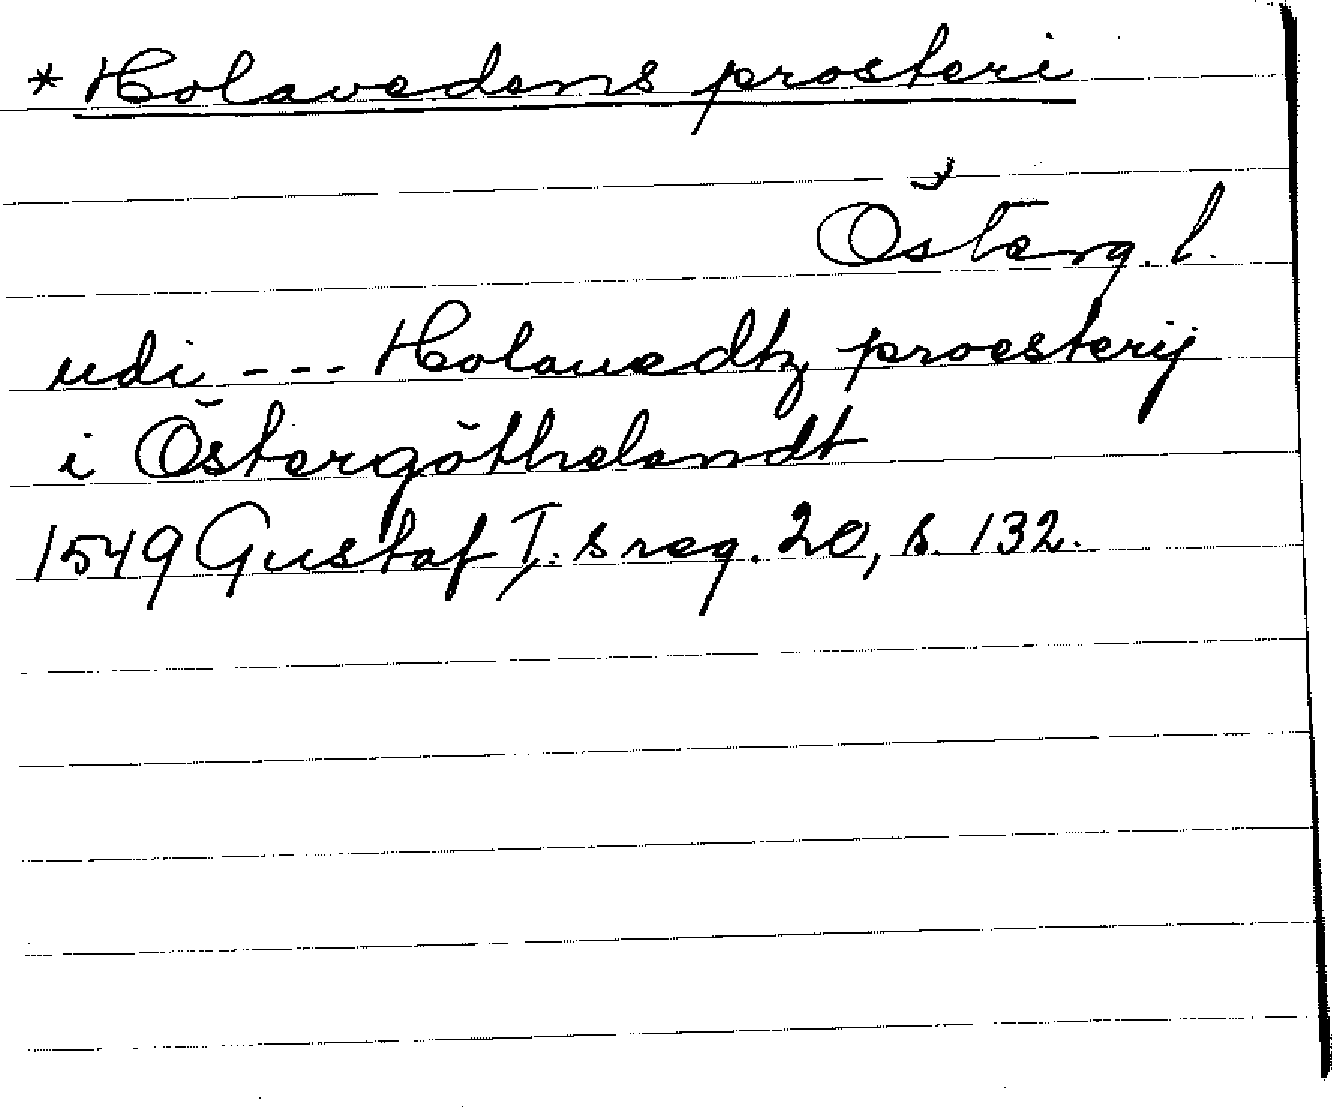 * Holavedens prosteri
Österg. l.
udi --- Holauedtz proesterij
i Östergöthelandt
1549 Gustaf I:s reg. 20, s. 132.